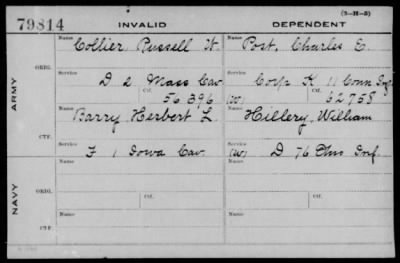 (3-H-3)
79814
INVALID
DEPENDENT
Name Collier, Russell W.
Name Post, Charles E.
ORIG.
Service D 2 Mass Cav
Service Corp K 11 Conn Inf
Ctf. 56396
(W) Ctf. 62758
ARMY
Name Barry Herbert L.
Name Hillery, William
CTF.
Service F 1 Iowa Cav.
Service (W) D 76 Ohio Inf.
Name
Name
ORIG.
Service
Ctf.
Service
Ctf.
NAVY
Name
Name
CTF.